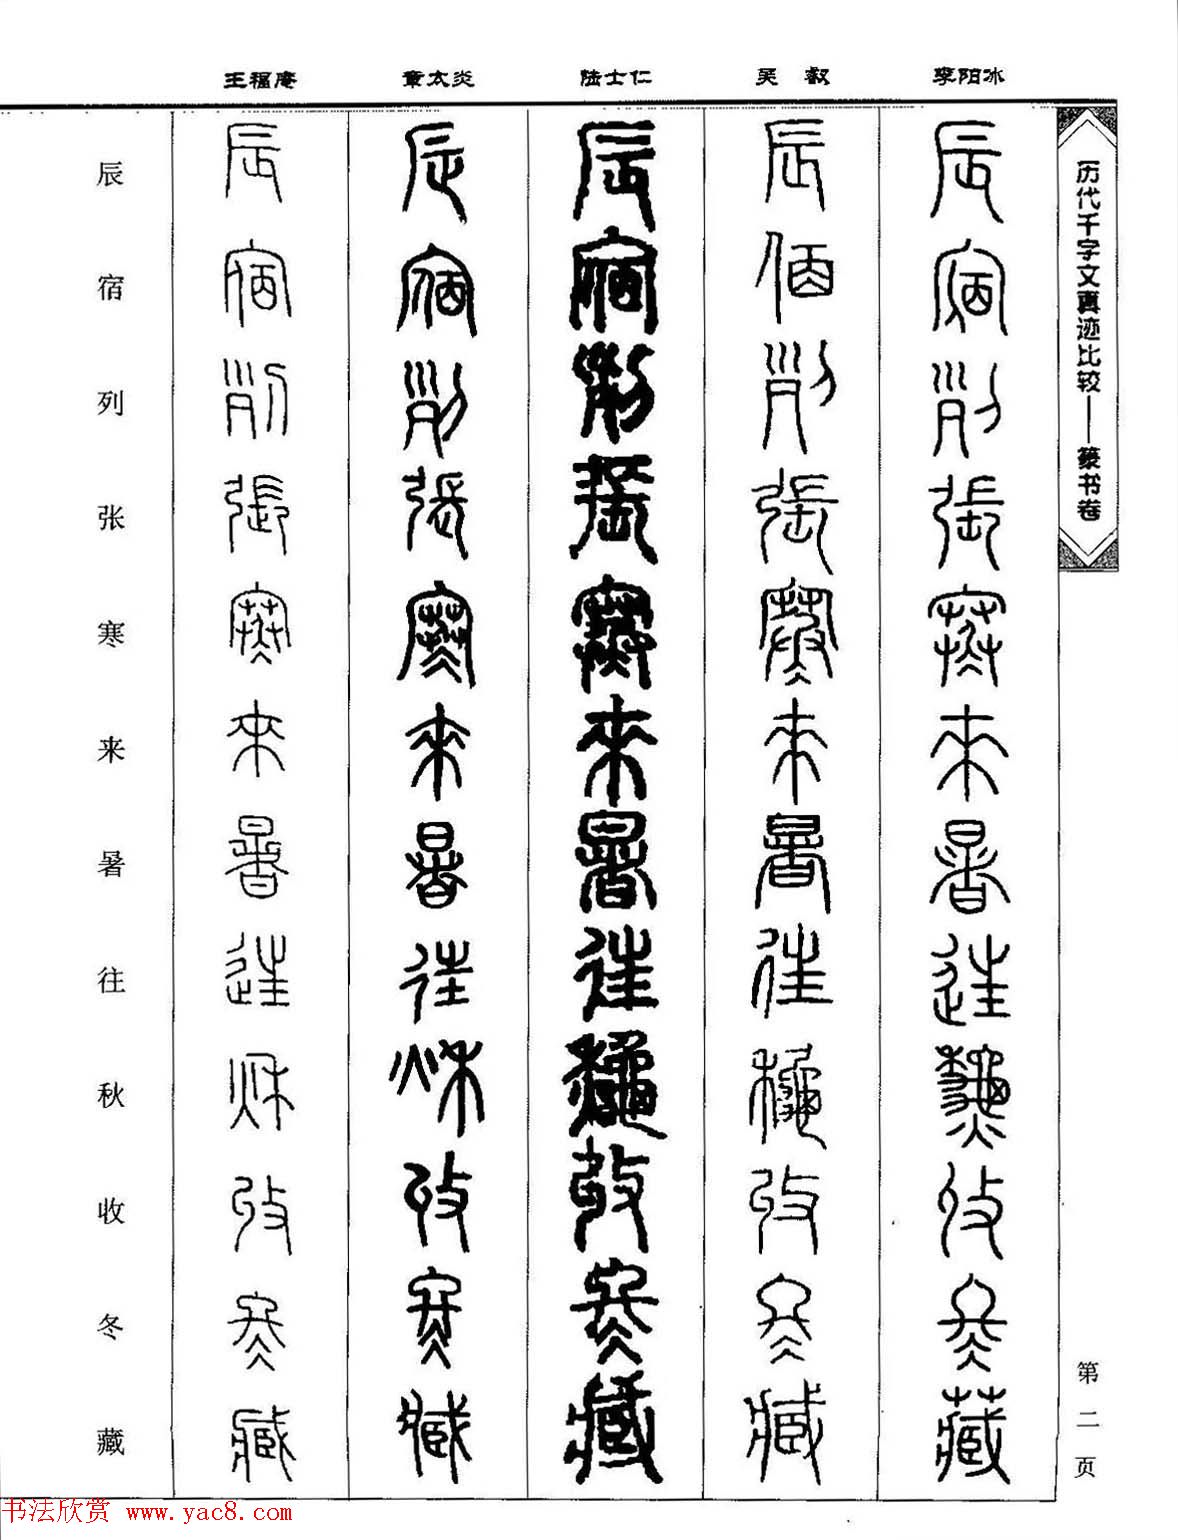 李阳冰
吴叡
陆士仁
章太炎
王福庵
历代千字文真迹比较——篆书卷
辰宿列张寒来暑往秋收冬藏
辰宿列张寒来暑往秋收冬藏
辰宿列张寒来暑往秋收冬藏
辰宿列张寒来暑往秋收冬藏
辰宿列张寒来暑往秋收冬藏
辰宿列张寒来暑往秋收冬藏
第二页
书法欣赏 www.yac8.com